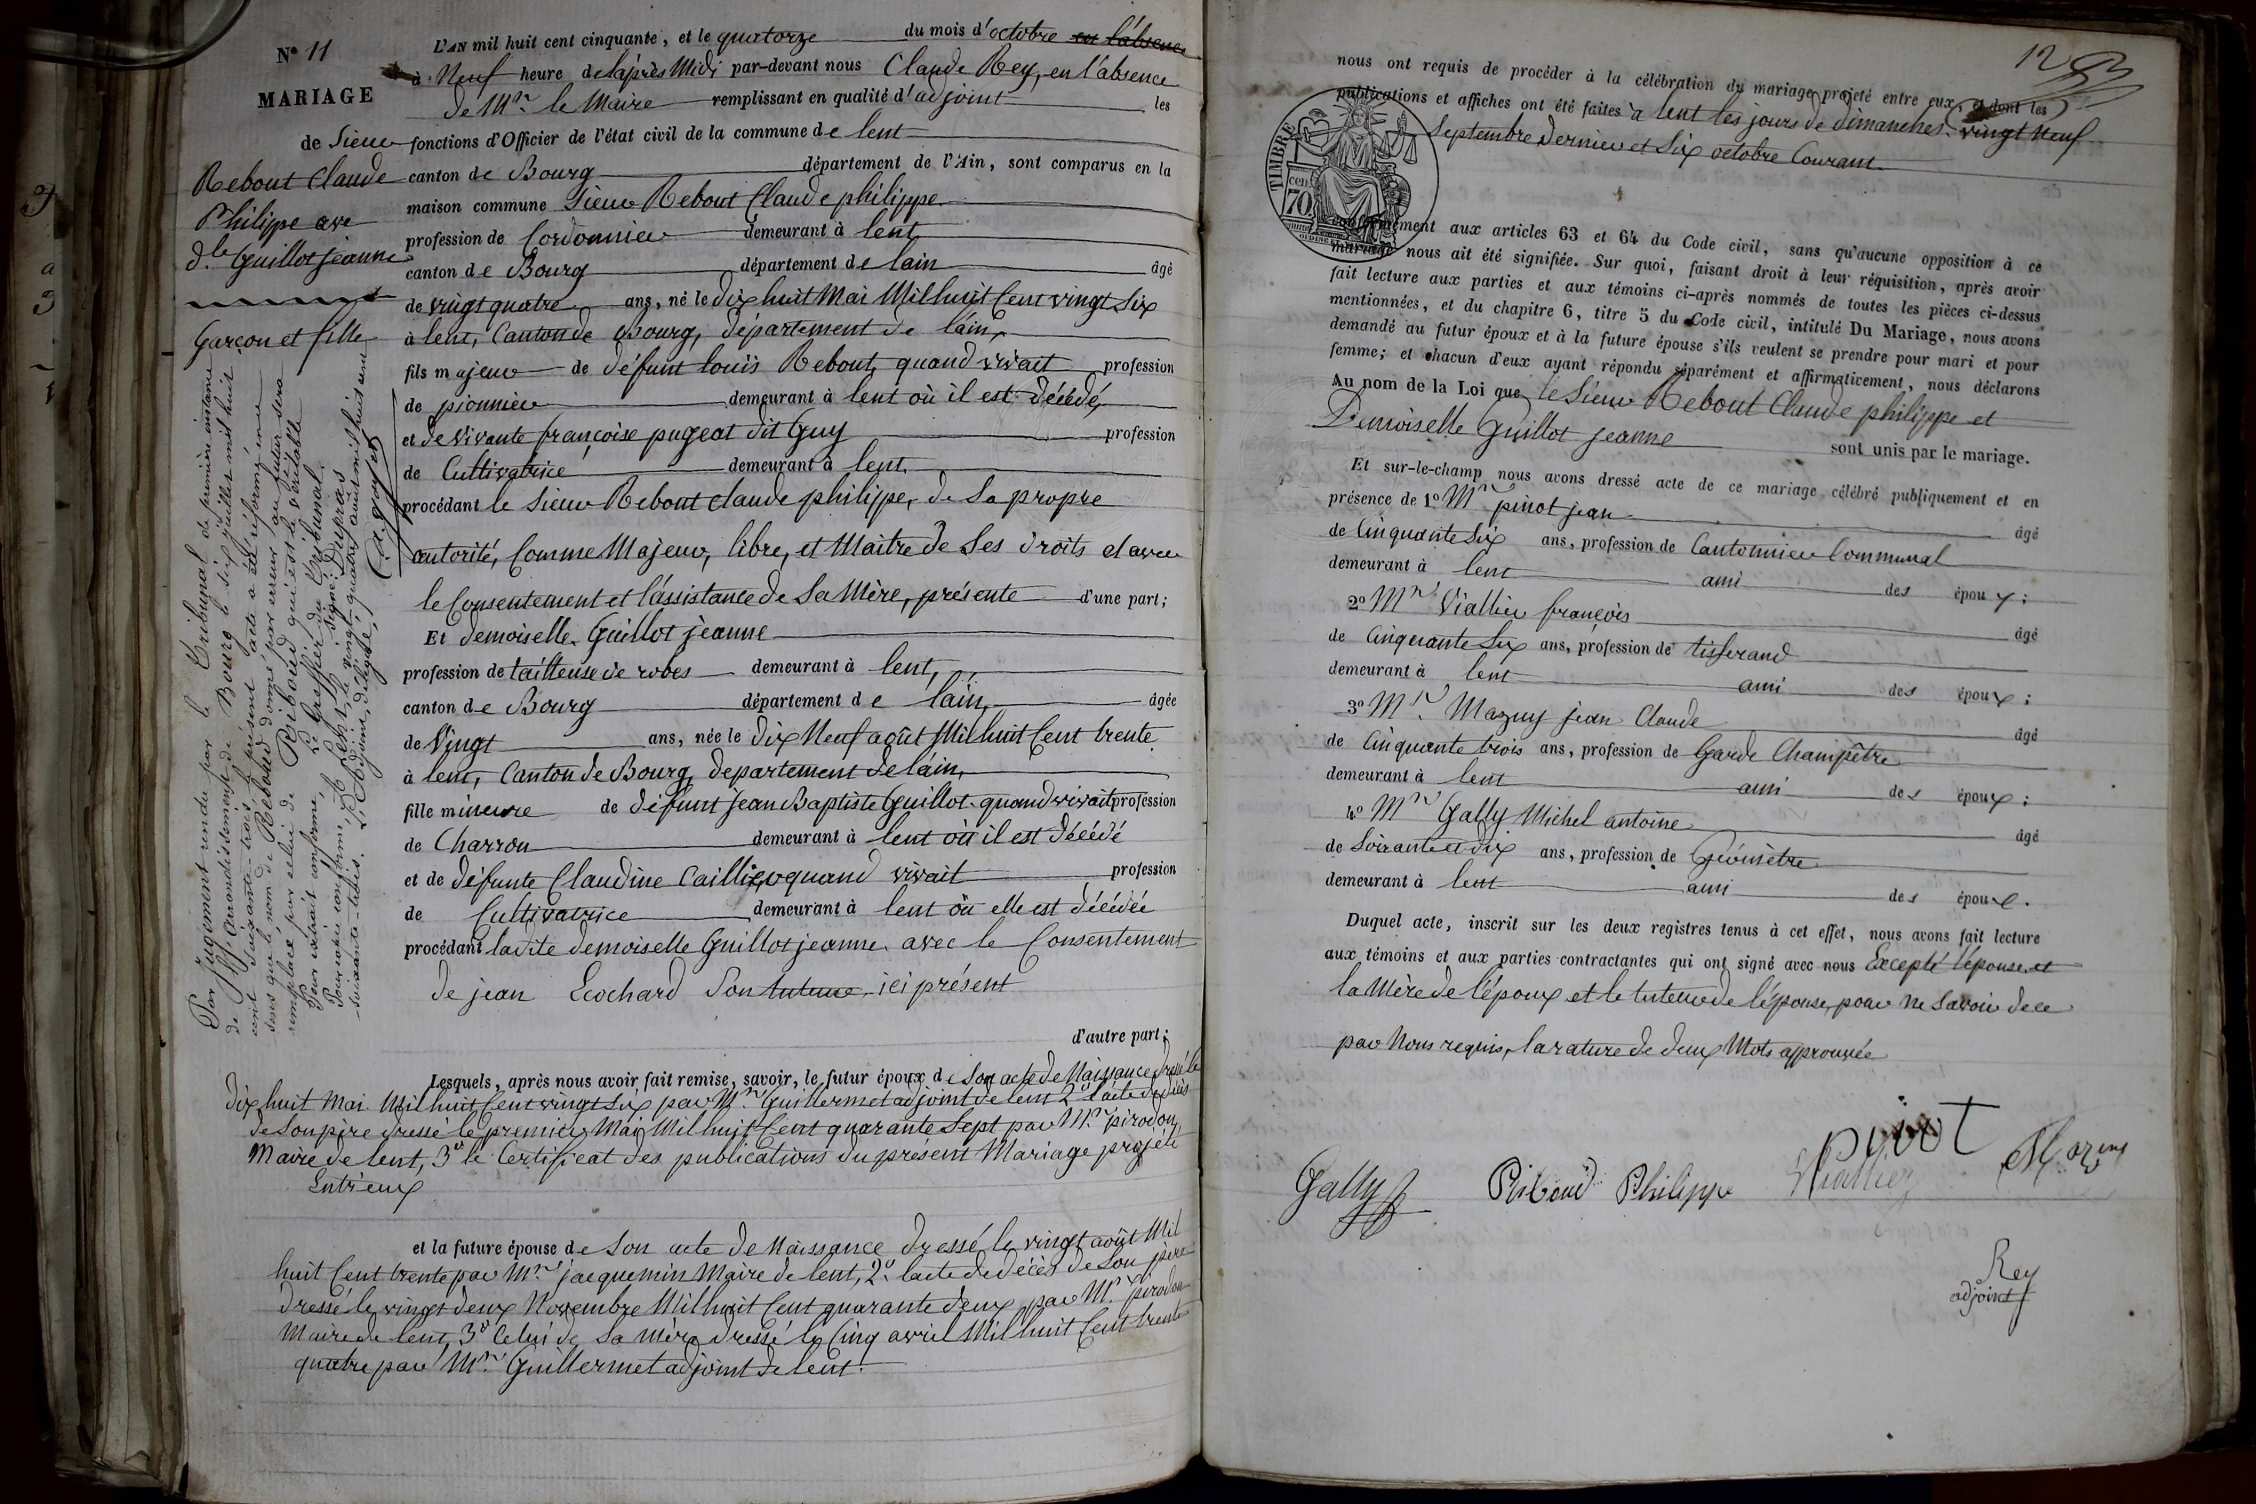 N° 11
MARIAGE
de Sieur
Rebout Claude
Philippe avec
d.lle Guillot jeanne
Garçon et fille
L'AN mil huit cent cinquante, et le quatorze du mois d'octobre en l'absence
à Neuf heure de l'après Midi par-devant nous Claude Rey, en l'absence
de Mr. le Maire remplissant en qualité d'adjoint les
fonctions d'Officier de l'état civil de la commune de lent
canton de Bourg département de l'Ain, sont comparus en la
maison commune Sieur Rebout Claude philippe
profession de Cordonnier demeurant à lent
canton de Bourg département de lain âgé
de vingt quatre ans, né le dix huit Mai Mil huit Cent vingt Six
à lent, Canton de Bourg, département de láin,
fils majeur de défunt louis Rebout, quand vivait profession
de pionnier demeurant à lent où il est décédé,
et de vivante françoise pugeat dit Guy profession
de Cultivatrice demeurant à lent,
procédant le Sieur Rebout claude philippe, de Sa propre
autorité, Comme Majeur, libre, et Maitre de Ses droits et avec
le Consentement et l'assistance de Sa Mère, présente d'une part;
Et demoiselle Guillot jeanne
profession de tailleuse de robes demeurant à lent,
canton de Bourg département de láin, âgée
de Vingt ans, née le dix Neuf août Mil huit Cent trente
à lent, Canton de Bourg, departement de láin,
fille mineure de défunt jean Baptiste Guillot quand vivait profession
de Charron demeurant à lent où il est décédé
et de défunte Claudine Caillier quand vivait profession
de Cultivatrice demeurant à lent où elle est décédée
procédant ladite demoiselle Guillot jeanne avec le Consentement
de jean Ecochard Son tuteur ici présent
d'autre part;
Lesquels, après nous avoir fait remise, savoir, le futur époux de Son acte de Naissance dressé le
dix huit Mai Mil huit Cent vingt Six par Mr. Guillermet adjoint de lent 2° l'acte de décès
de Son père dressé le premier Mai Mil huit Cent quarante Sept par Mr. pirodon,
Maire de lent, 3° le Certificat des publications du présent Mariage projété
Entr'eux
et la future épouse de Son acte de Naissance dressé le vingt août Mil
huit Cent trente par Mr. jacquemin Maire de lent, 2° l'acte de décès de Son père
dressé le vingt deux Novembre Mil huit Cent quarante deux par Mr. pirodon
Maire de lent, 3° Celui de Sa Mère dressé le Cinq avril Mil huit Cent trente
quatre par Mr. Guillermet adjoint de lent.
Par jugement rendu par le Tribunal de première instance
de l'Arrondissement de Bourg le six juillet mil huit
cent soixante-trois, le présent acte a été réformé en ce
sens que le nom de Reboud donné par erreur au futur sera
remplacé par celui de Riboud qui est le véritable
Pour extrait conforme, Le Greffier du Tribunal
signé: Dupras
Pour copie conforme, A Lent, le vingt-quatre août mil huit cent
soixante-trois. L'Adjoint, délégué,
12
nous ont requis de procéder à la célébration du mariage projeté entre eux, et dont les
publications et affiches ont été faites à lent les jours de dimanches vingt Neuf
Septembre dernier et Six octobre Courant.
TIMBRE
70 cen
conformément aux articles 63 et 64 du Code civil, sans qu'aucune opposition à ce
mariage nous ait été signifiée. Sur quoi, faisant droit à leur réquisition, après avoir
fait lecture aux parties et aux témoins ci-après nommés de toutes les pièces ci-dessus
mentionnées, et du chapitre 6, titre 5 du Code civil, intitulé Du Mariage, nous avons
demandé au futur époux et à la future épouse s'ils veulent se prendre pour mari et pour
femme; et chacun d'eux ayant répondu séparément et affirmativement, nous déclarons
Au nom de la Loi que le Sieur Rebout Claude philippe et
Demoiselle Guillot jeanne sont unis par le mariage.
Et sur-le-champ nous avons dressé acte de ce mariage célébré publiquement et en
présence de 1° Mr pinot jean âgé
de Cinquante Six ans, profession de Cantonnier Communal
demeurant à lent ami des époux;
2° Mr. Viallier françois âgé
de Cinquante Six ans, profession de tisserand
demeurant à lent ami des époux;
3° Mr. Mazuy jean Claude âgé
de Cinquante trois ans, profession de Garde Champêtre
demeurant à lent ami des époux;
4° Mr Gally Michel antoine âgé
de Soixante et dix ans, profession de Géomètre
demeurant à lent ami des époux.
Duquel acte, inscrit sur les deux registres tenus à cet effet, nous avons fait lecture
aux témoins et aux parties contractantes qui ont signé avec nous Excepté l'épouse et
la Mère de l'époux et le tuteur de l'épouse, pour Ne Savoir de ce
par Nous requis, la rature de deux Mots approuvée
Gally
Riboud Philippe
pinot
Viallier
Mazuy
Rey
adjoint